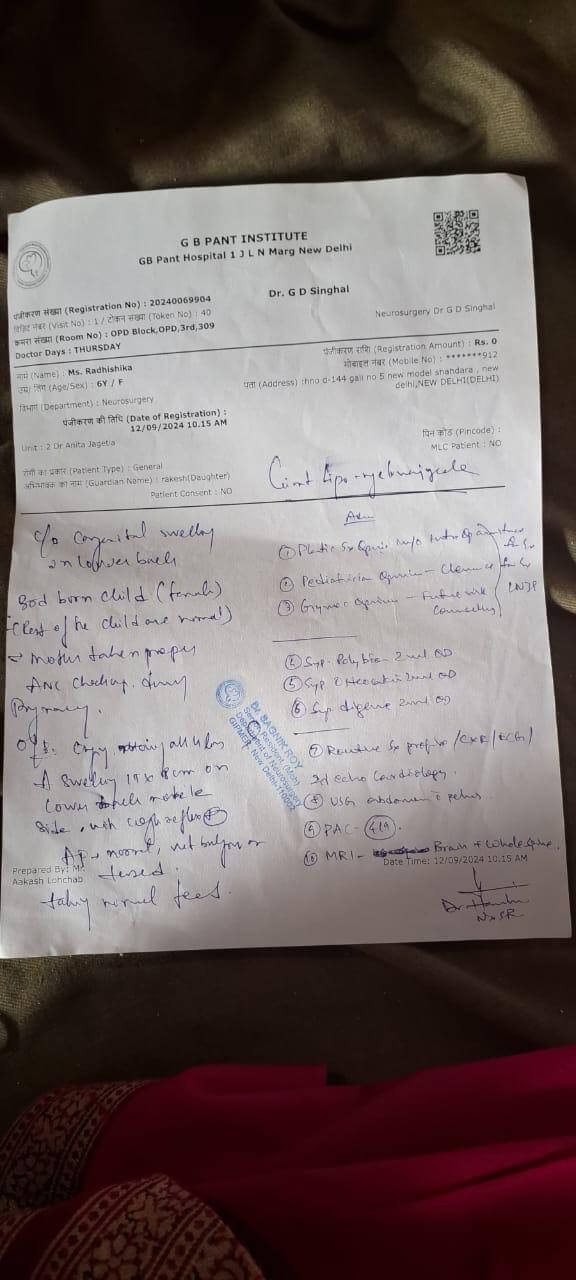 G B PANT INSTITUTE
GB Pant Hospital 1 J L N Marg New Delhi
Dr. G D Singhal
Neurosurgery Dr G D Singhal
पंजीकरण संख्या (Registration No) : 20240069904
विज़िट नंबर (Visit No) : 1 / टोकन संख्या (Token No) : 40
कमरा संख्या (Room No) : OPD Block,OPD,3rd,309
Doctor Days : THURSDAY
पंजीकरण राशि (Registration Amount) : Rs. 0
मोबाइल नंबर (Mobile No) : *******912
नाम (Name) : Ms. Radhishika
उम्र/ लिंग (Age/Sex) : 6Y / F
पता (Address) :hno d-144 gali no 5 new model shahdara , new
delhi,NEW DELHI(DELHI)
विभाग (Department) : Neurosurgery
पंजीकरण की तिथि (Date of Registration) :
12/09/2024 10.15 AM
पिन कोड (Pincode) :
MLC Patient : NO
Unit : 2 Dr Anita Jagetia
रोगी का प्रकार (Patient Type) : General
अभिभावक का नाम (Guardian Name) : rakesh(Daughter)
Patient Consent : NO
Giant Lipo-
c/o Congenital swelling
on lower back
3rd born child (female)
(Rest of the child are normal)
→ mother taken proper
ANC Checkup during
Pregnancy.
O/E:
A swelling on
Lower
side, with cough reflex ⊕
AF → normal, not bulging or
tensed.
taking normal feeds.
Adv
① Plastic Sx Opinion
② Pediatrician Opinion - Clearance for Sx
③ Opinion - Future risk
Counseling
LNJP
⑤ Syp 2ml OD
⑥ Syp digene 2ml OD
⑦ Routine Sx profile / CXR / ECG /
2d echo Cardiology.
⑧ USG abdomen c̄ pelvis
⑨ PAC-
⑩ MRI- Brain + Whole Spine
Dr. SAGNIK ROY
Senior Resident (Mch)
Department of Neurosurgery
GIPMER, New Delhi-110002
Prepared By: Mr.
Aakash Lohchab
Date Time: 12/09/2024 10.15 AM
NxSR